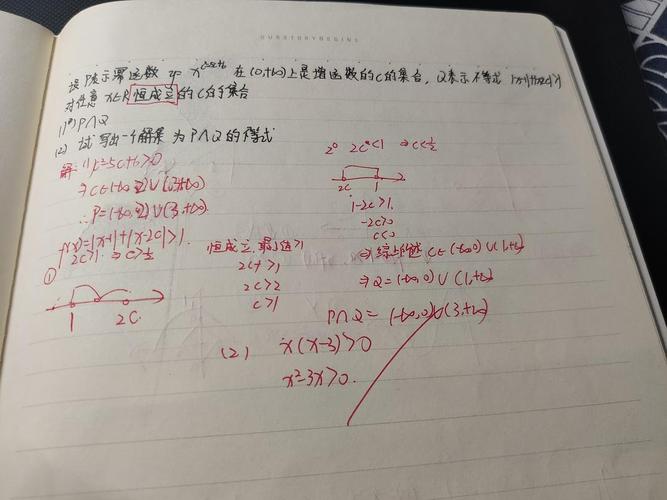 OURSTORYBEGINS
设P表示幂函数 y=x^(c²-5c+6) 在(0,+∞)上是增函数的c的集合，Q表示不等式 |x-1|+|x-2c|>1
对任意 x∈R 恒成立的c的集合
(1)求P∩Q
(2) 试写出一个解集为P∩Q的不等式
解：(1) c²-5c+6>0
⇒ c∈(-∞,2)∪(3,+∞)
∴P=(-∞,2)∪(3,+∞)
f(x)=|x-1|+|x-2c|>1
2c>1 ⇒ c>1/2
①
1 2c
恒成立,最小值>1
2c-1>1
2c>2
c>1
2° 2c<1 ⇒c<1/2
2c 1
1-2c>1
-2c>0
c<0
⇒综上所述 c∈(-∞,0)∪(1,+∞)
⇒Q=(-∞,0)∪(1,+∞)
P∩Q=(-∞,0)∪(3,+∞)
(2) x(x-3)>0
x²-3x>0.